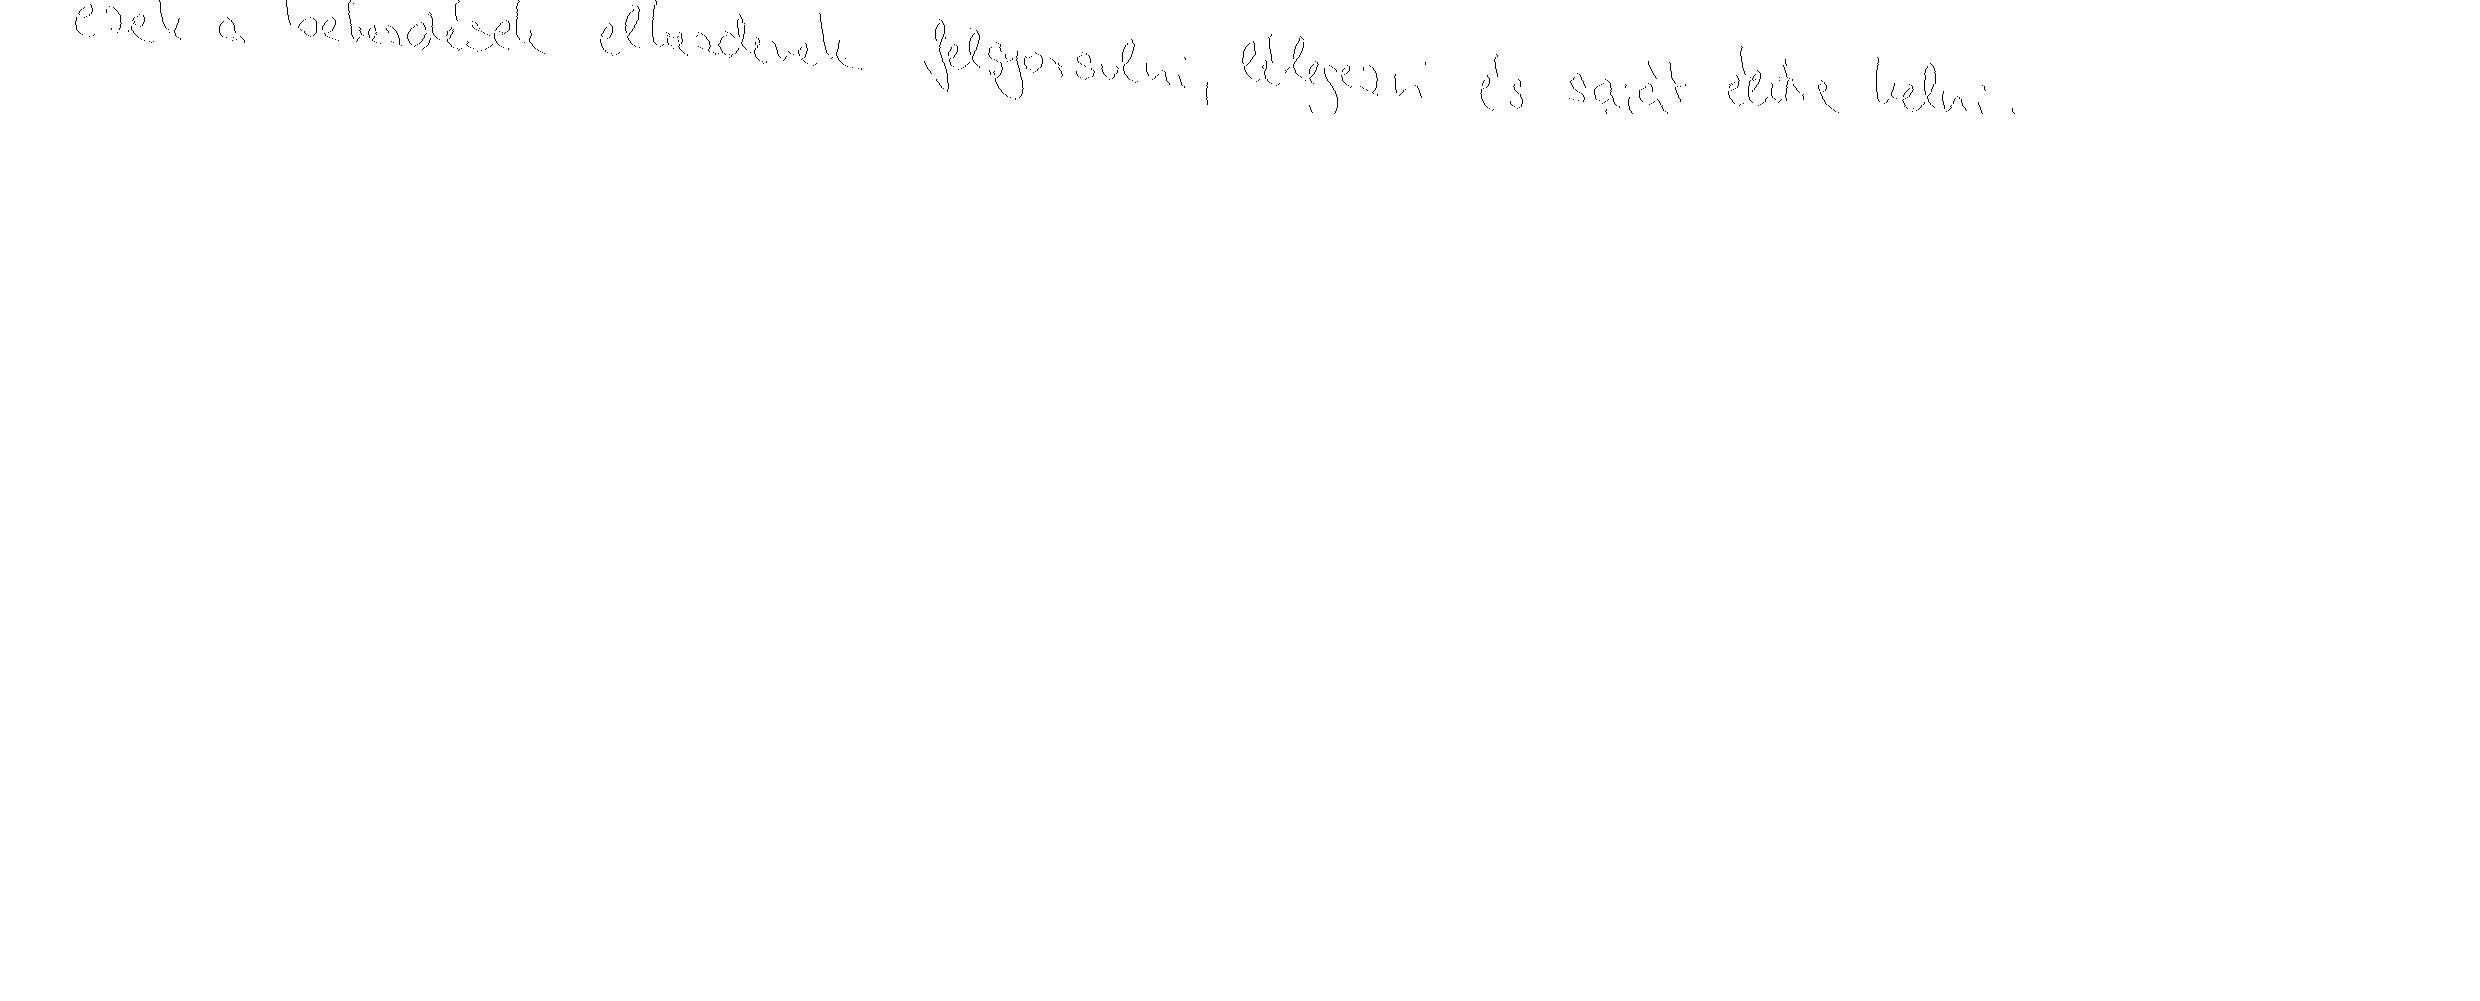 ezek a berendezések elkezdenek felgyorsulni, lélegezni és saját életre kelni.